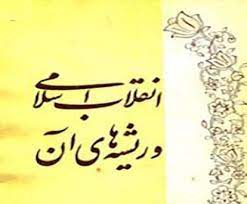 انقلاب اسلامی
و ریشه‌های آن